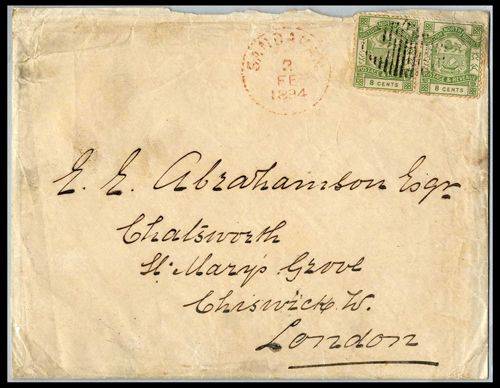 SANDAKAN
2
FE
1894
POSTAGE & REVENUE
8 CENTS
POSTAGE & REVENUE
8 CENTS
E. E. Abrahamson Esqr
Chatsworth
St. Mary's Grove
Chiswick W.
London